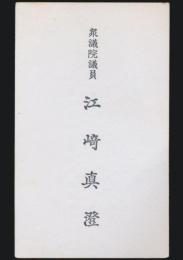 衆議院議員
江﨑真澄